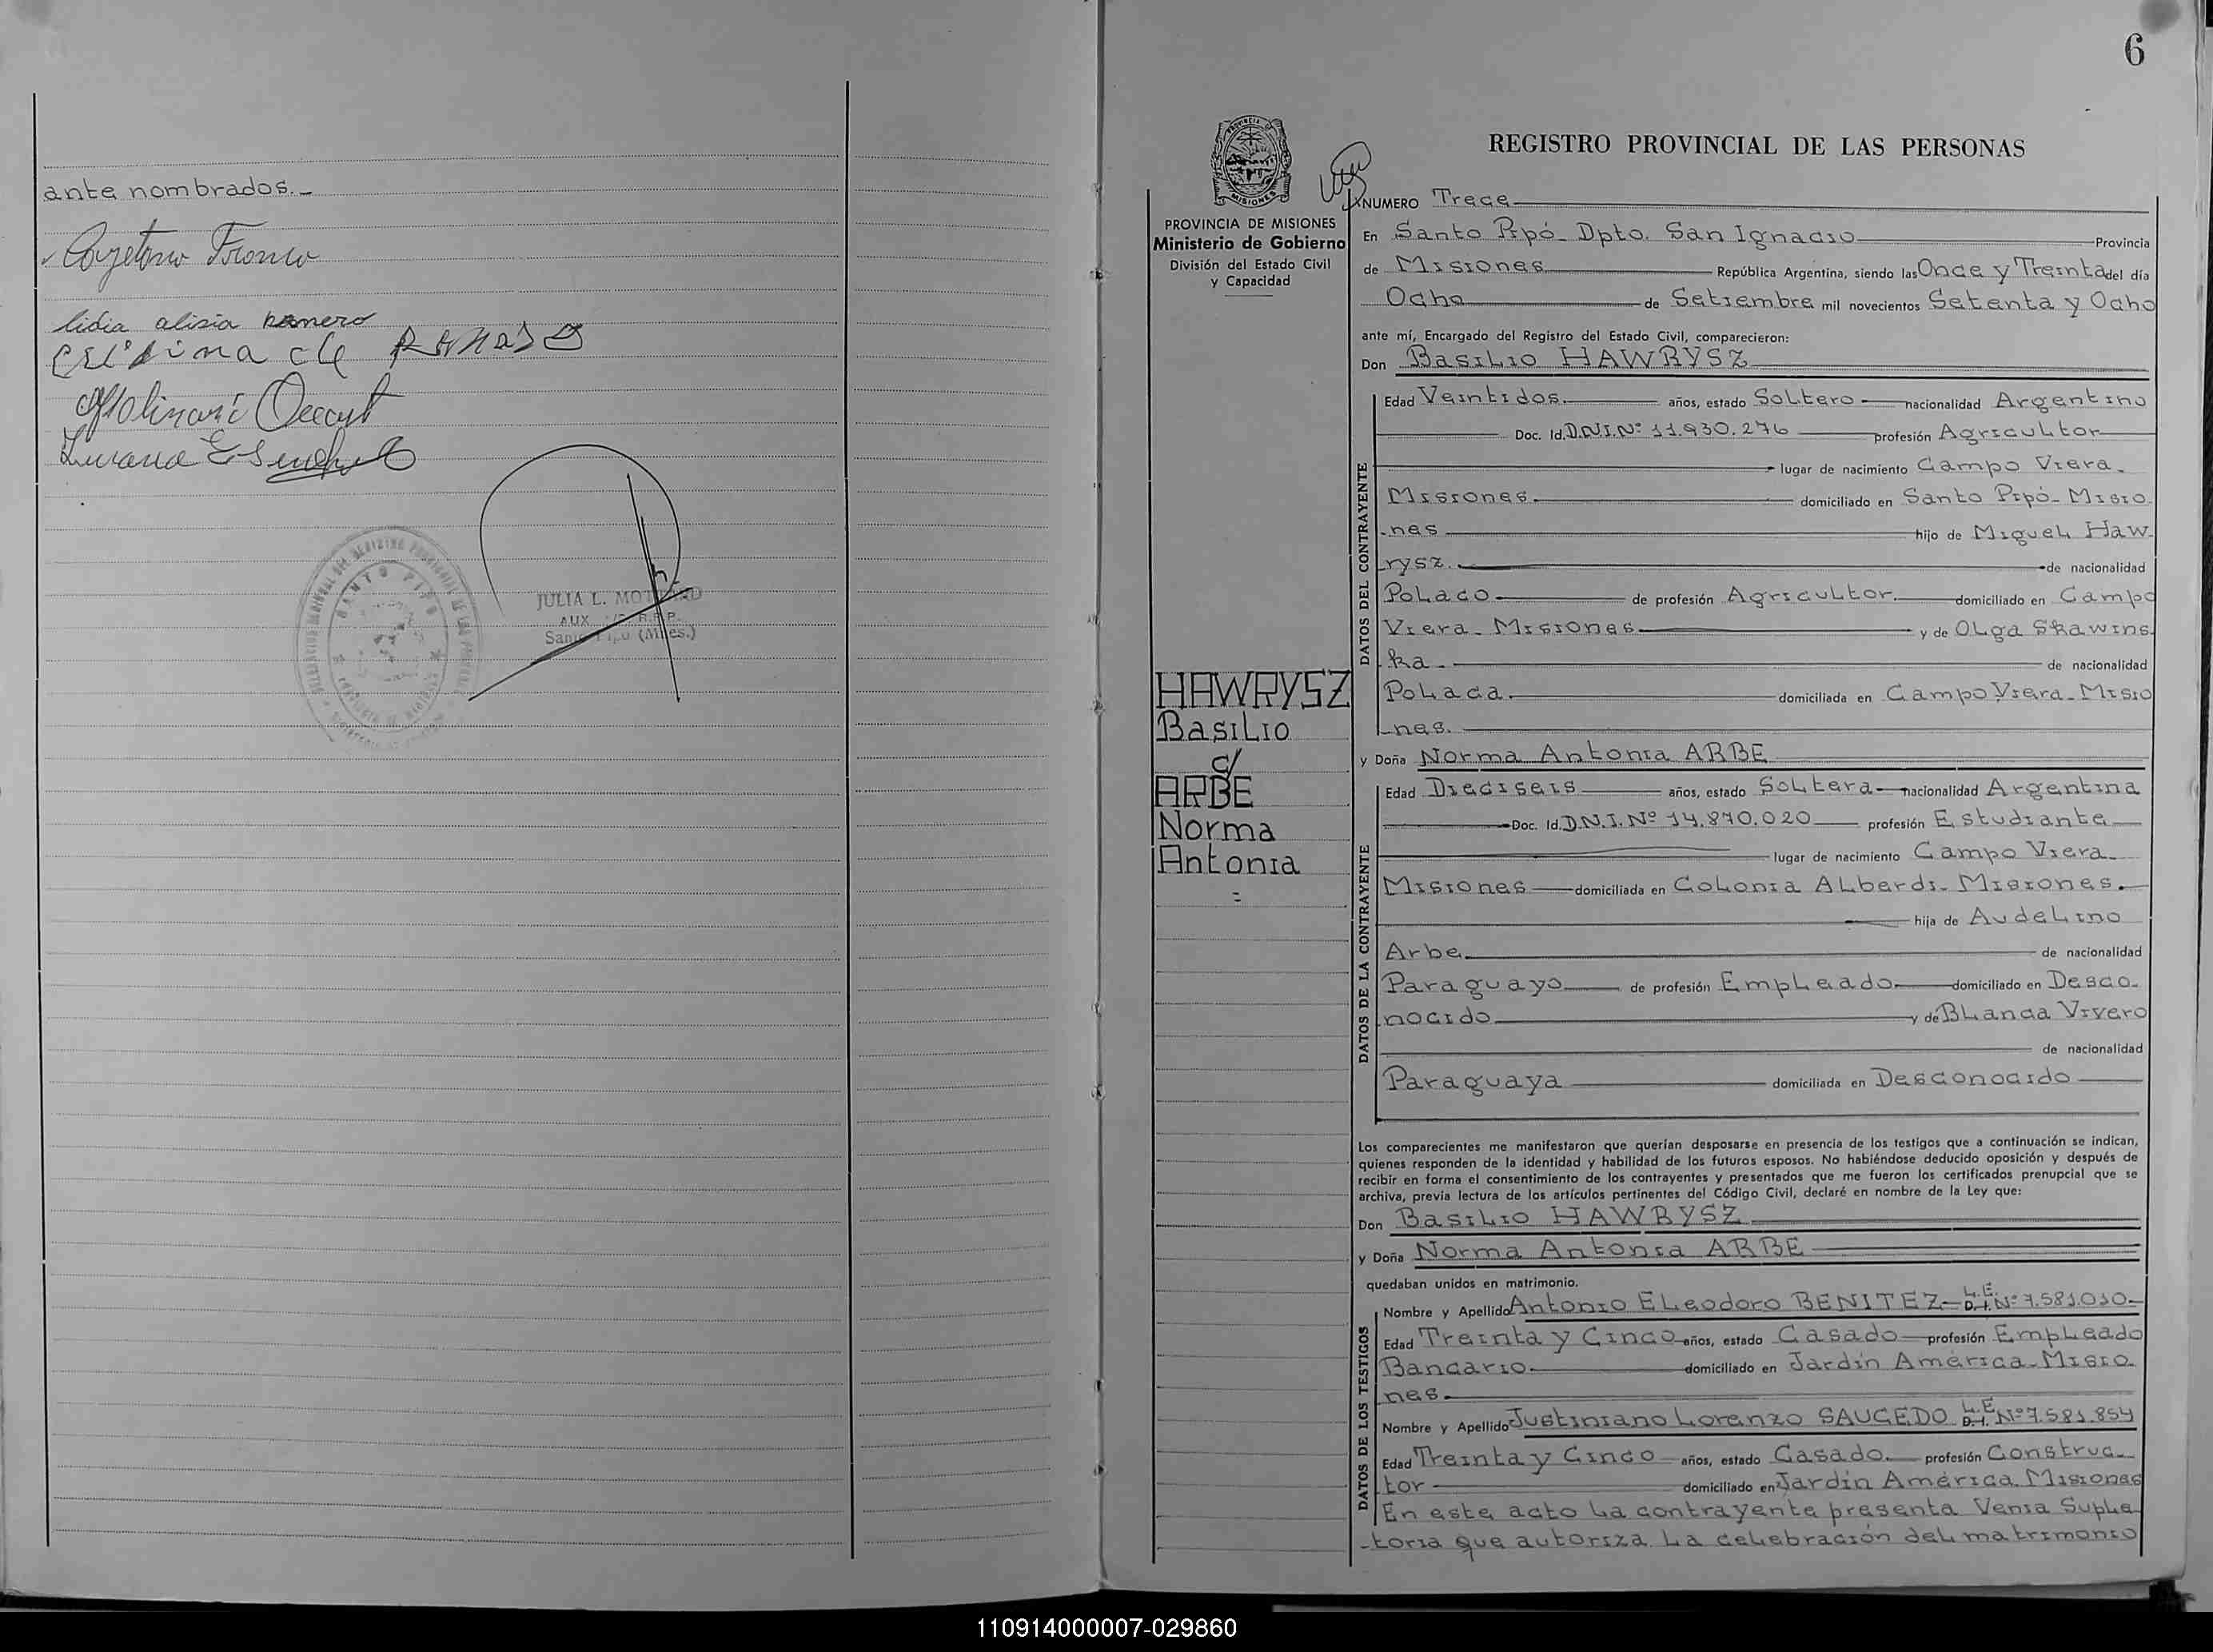 ante nombrados._
Cayetano Franco
lidia alisia
de
JULIA L.
AUX.
Santo Pipó (Mnes.)
SANTO PIPO
6
REGISTRO PROVINCIAL DE LAS PERSONAS
PROVINCIA DE MISIONES
Ministerio de Gobierno
División del Estado Civil
y Capacidad
HAWRYSZ
Basilio
c/
ARBE
Norma
Antonia
NUMERO Trece
En Santo Pipó_ Dpto. San Ignacio Provincia
de Misiones República Argentina, siendo las Once y Treinta del día
Ocho de Setiembre mil novecientos Setenta y Ocho
ante mí, Encargado del Registro del Estado Civil, comparecieron:
Don Basilio HAWRYSZ
DATOS DEL CONTRAYENTE
Edad Veintidos. años, estado Soltero nacionalidad Argentino
Doc. Id. D.N.I. Nº 11.930.276 profesión Agricultor
lugar de nacimiento Campo Viera_
Misiones. domiciliado en Santo Pipó_ Misio_
_nes hijo de Miguel Haw_
_rysz. de nacionalidad
Polaco de profesión Agricultor. domiciliado en Campo
Viera_ Misiones y de Olga Skawins_
_ka_ de nacionalidad
Polaca. domiciliada en Campo Viera_ Misio
_nes.
y Doña Norma Antonia ARBE
DATOS DE LA CONTRAYENTE
Edad Dieciseis años, estado Soltera nacionalidad Argentina
Doc. Id. D.N.I. Nº 14.870.020 profesión Estudiante
lugar de nacimiento Campo Viera_
Misiones domiciliada en Colonia Alberdi_ Misiones.
hija de Audelino
Arbe de nacionalidad
Paraguayo de profesión Empleado domiciliado en Desco_
_nocido y de Blanca Vivero
de nacionalidad
Paraguaya domiciliada en Desconocido
Los comparecientes me manifestaron que querían desposarse en presencia de los testigos que a continuación se indican,
quienes responden de la identidad y habilidad de los futuros esposos. No habiéndose deducido oposición y después de
recibir en forma el consentimiento de los contrayentes y presentados que me fueron los certificados prenupcial que se
archiva, previa lectura de los artículos pertinentes del Código Civil, declaré en nombre de la Ley que:
Don Basilio HAWRYSZ
y Doña Norma Antonia ARBE
quedaban unidos en matrimonio.
DATOS DE LOS TESTIGOS
Nombre y Apellido Antonio Eleodoro BENITEZ_ L.E. D.I. Nº 7.581.010_
Edad Treinta y Cinco años, estado Casado profesión Empleado
Bancario. domiciliado en Jardín América_ Misio_
nes.
Nombre y Apellido Justiniano Lorenzo SAUCEDO L.E. D.I. Nº 7.581.854
Edad Treinta y Cinco años, estado Casado. profesión Construc_
_tor domiciliado en Jardín América. Misiones
En este acto la contrayente presenta Venia Suple_
_toria que autoriza la celebración del matrimonio
110914000007-029860